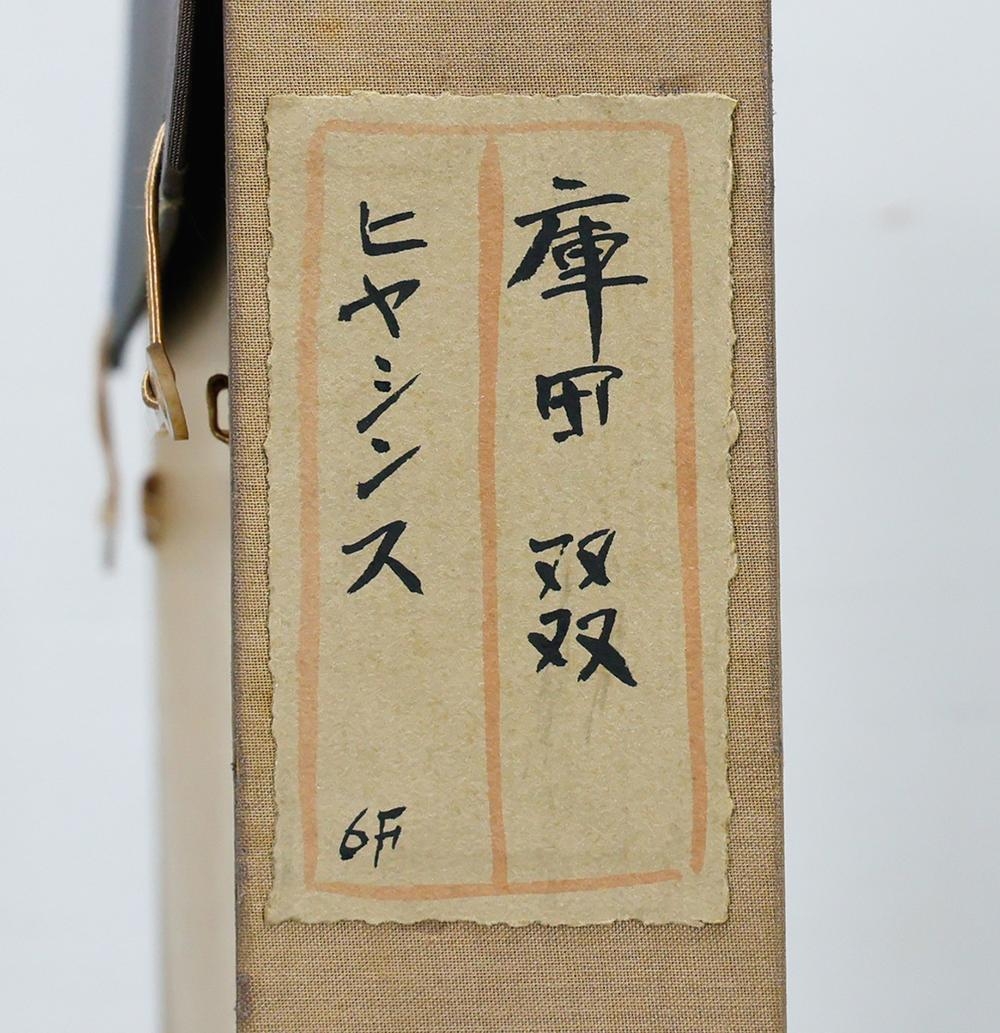 庫田 叕
ヒヤシンス
6F